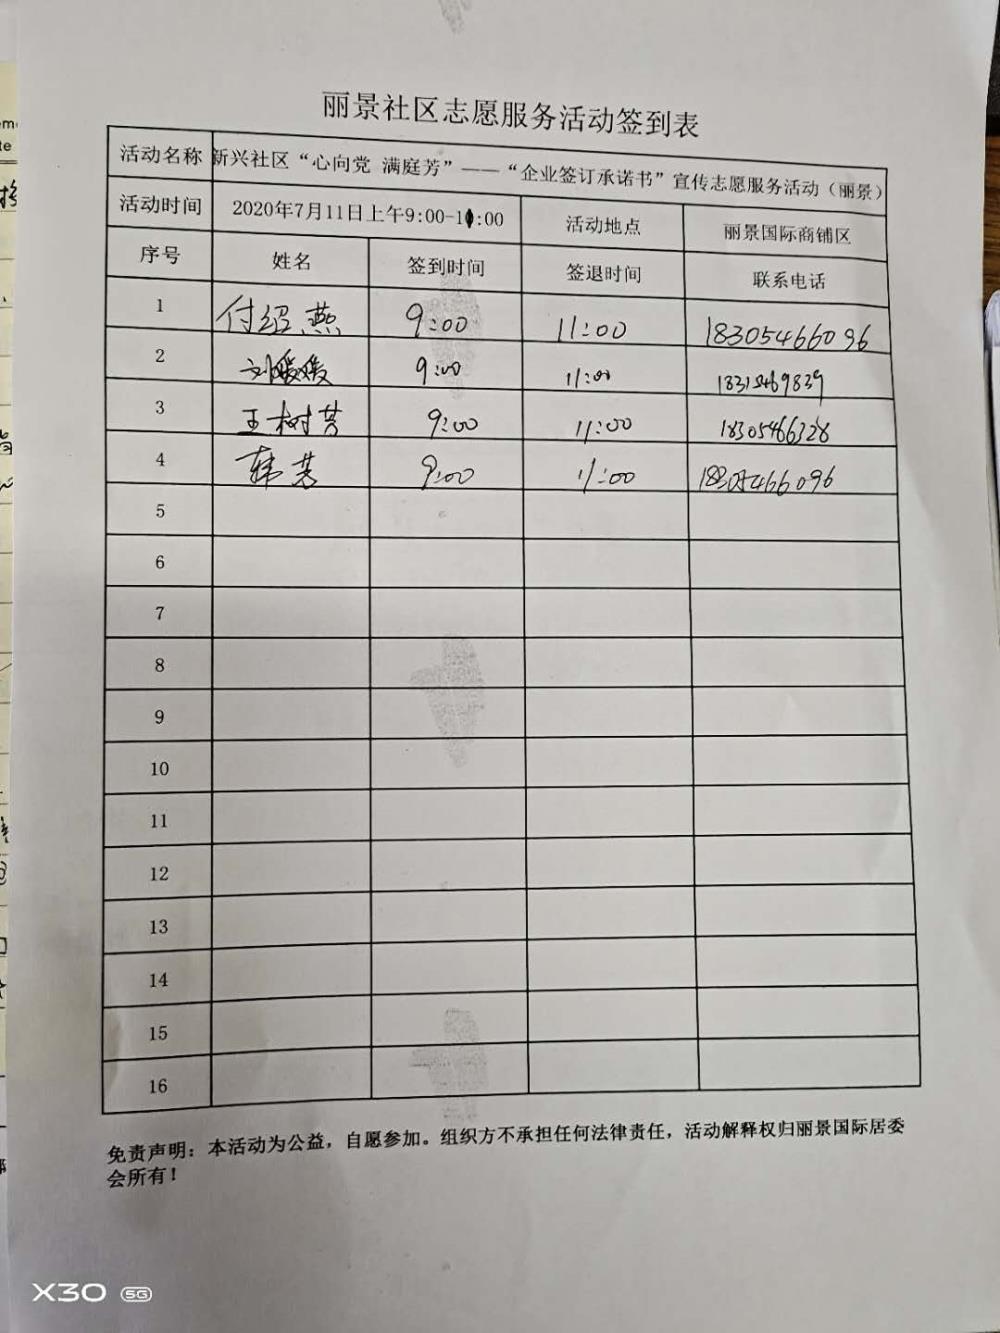 丽景社区志愿服务活动签到表
活动名称 新兴社区“心向党 满庭芳”——“企业签订承诺书”宣传志愿服务活动（丽景）
活动时间 2020年7月11日上午9:00-11:00 活动地点 丽景国际商铺区
序号 姓名 签到时间 签退时间 联系电话
1 付绍燕 9:00 11:00 18305466096
2 刘媛媛 9:00 11:00
3 王树芳 9:00 11:00 18305466328
4 韩芳 9:00 11:00 18305466096
5
6
7
8
9
10
11
12
13
14
15
16
免责声明：本活动为公益，自愿参加。组织方不承担任何法律责任，活动解释权归丽景国际居委
会所有！
X30 5G